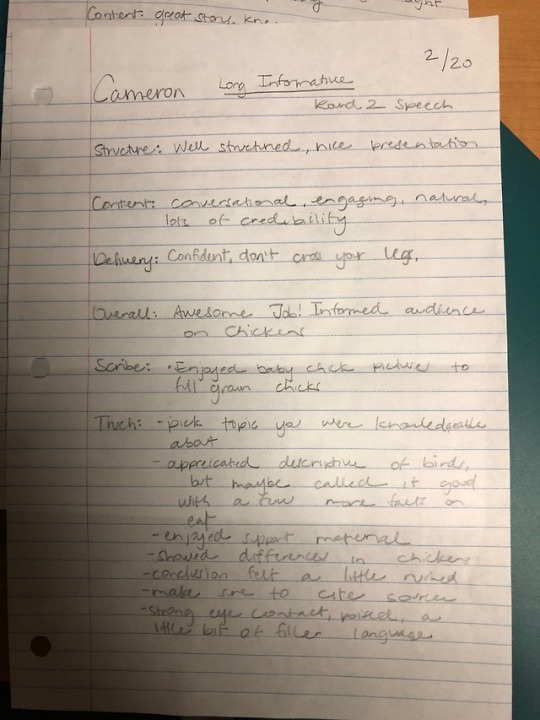 Content: great story, kn
2/20
Cameron Long Informative
Round 2 Speech
Structure: Well structured, nice presentation
Content: conversational, engaging, natural,
lots of credibility
Delivery: Confident, don't cross your legs.
Overall: Awesome Job! Informed audience
on Chickens
Scribe: • Enjoyed baby chick pictures to
full grown chicks
- pick topic you were knowledgeable
about
- appreicated descriptive of birds,
but maybe called it good
with a few more facts on
eat
- enjoyed support material
- showed differences in chickens
- conclusion felt a little rushed
- make sure to cite source
- strong eye contact, poised, a
little bit of filler language